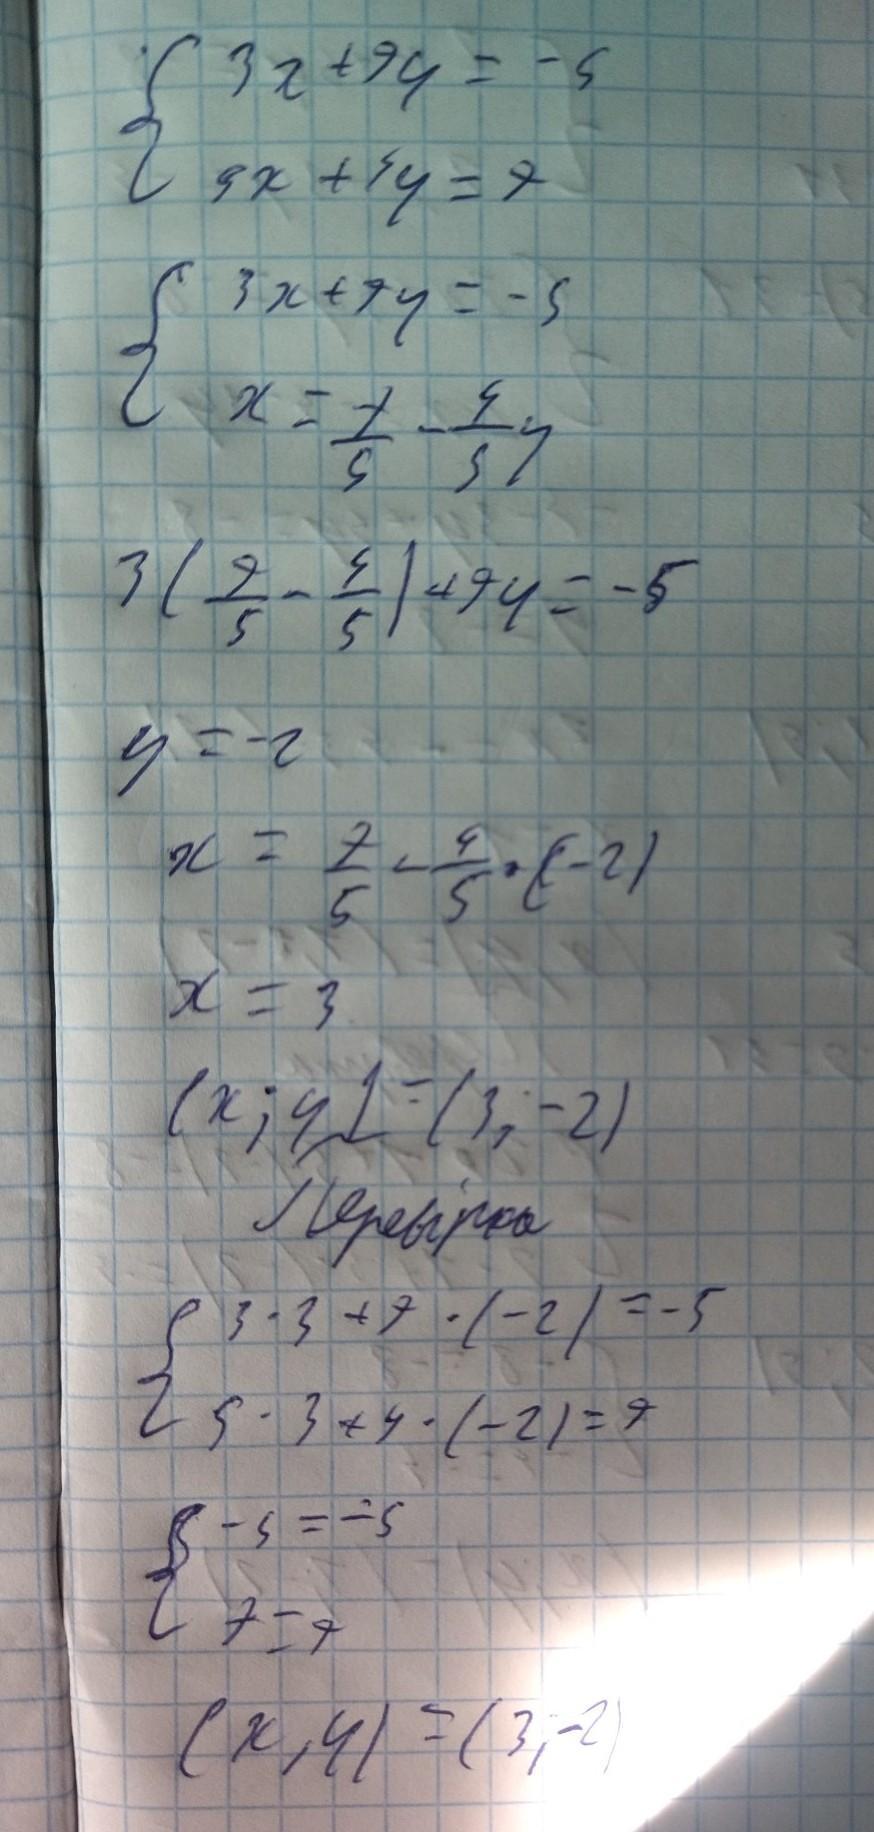 { 3x + 7y = -5
5x + 4y = 7
{ 3x + 7y = -5
x = 7/5 - 4/5 y
3(7/5 - 4/5) + 7y = -5
y = -2
x = 7/5 - 4/5 · (-2)
x = 3
(x; y) = (3; -2)
Перевірка
{ 3 · 3 + 7 · (-2) = -5
5 · 3 + 4 · (-2) = 7
{ -5 = -5
7 = 7
(x, y) = (3; -2)